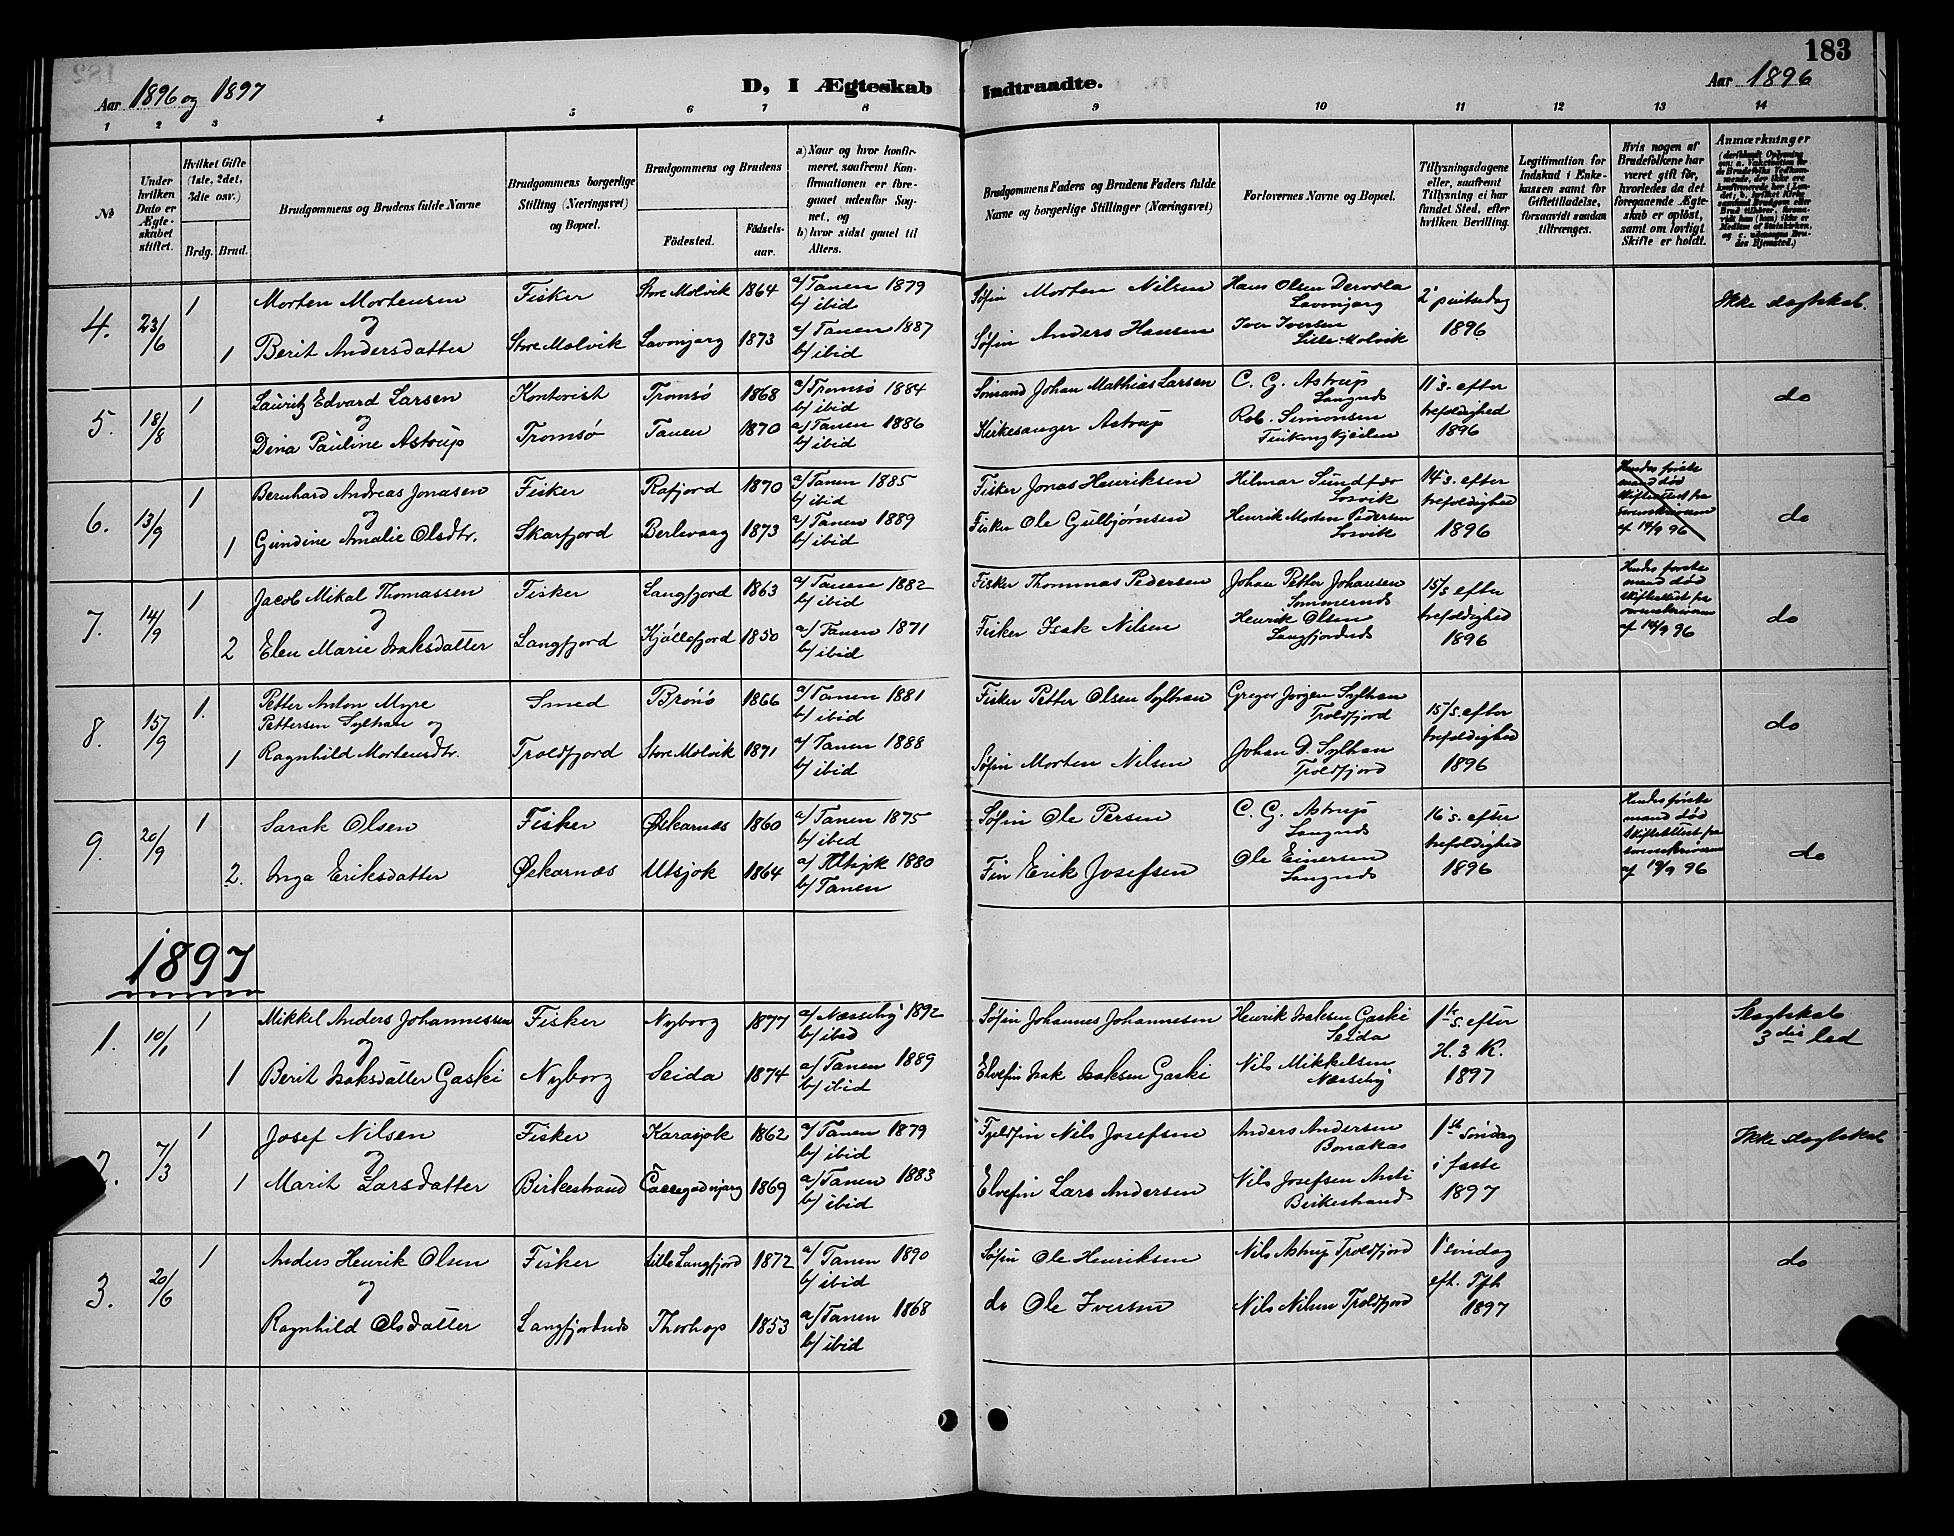 183
Aar 1896 og 1897
D, I Ægteskab Indtraadte.
Aar 1896
1 2 3 4 5 6 7 8 9 10 11 12 13 14
№
Under hvilken Dato er Ægteskabet stiftet.
Hvilket Gifte (1ste, 2det, 3dte osv.)
Brdg. Brud.
Brudgommens og Brudens fulde Navne
Brudgommens borgerlige Stilling (Næringsvei) og Bopæl.
Brudgommens og Brudens
Födested.
Födselsaar.
a) Naar og hvor konfirmeret, saafremt Konfirmationen er foregaaet udenfor Sognet, og
b) hvor sidst gaaet til Alters.
Brudgommens Faders og Brudens Faders fulde Navne og borgerlige Stillinger (Næringsvei)
Forlovernes Navne og Bopæl.
Tillysningsdagene eller, saafremt Tillysning ei har fundet Sted, efter hvilken Bevilling.
Legitimation for Indskud i Enkekassen samt for Giftetilladelse, forsaavidt saadan tiltrænges.
Hvis nogen af Brudefolkene har været gift før, hvorledes da det foregaaende Ægteskab er opløst, samt om lovligt Skifte er holdt.
Anmærkninger
4. 23/6 1 Morten Mortensen Fisker Store Molvik 1864 a/ Tanen 1879 b/ ibid Søfin Morten Nilsen Hans Olsen Lavonjarg 2' pintsedag 1896 Ikke slægtskab.
og
1 Berit Andersdatter Store Molvik Lavonjarg 1873 a/ Tanen 1887 b/ ibid Søfin Anders Hansen Iver Iversen Lille Molvik
5. 18/8 1 Lauritz Edvard Larsen Kontorist Tromsø 1868 a/ Tromsø 1884 b/ ibid Sømand Johan Mathias Larsen C. G. Astrup Langnæs 11' s. efter trefoldighed 1896 do
og
Dina Pauline Astrup Tromsø Tanen 1870 a/ Tanen 1886 b/ ibid Kirkesanger Astrup Rob. Simonsen Finkongkjeilen
6. 13/9 1 Bernhard Andreas Jonasen Fisker Rafjord 1870 a/ Tanen 1885 b/ ibid Fisker Jonas Henriksen Hilmar Losvik 14' s. efter trefoldighed 1896 Hendes første mand død Skifteattest fra sorenskriveren af 14/9 96 do
og
1 Gundine Amalie Olsdtr. Skarfjord Berlevaag 1873 a/ Tanen 1889 b/ ibid Fisker Ole Gulbjørnsen Henrik Morten Pedersen Losvik
7. 14/9 1 Jacob Mikal Thomassen Fisker Langfjord 1863 a/ Tanen 1882 b/ ibid Fisker Thommas Pedersen Johan Petter Johansen Sommernæs 15/s efter trefoldighed 1896 Hendes første mand død Skifteattest fra sorenskriveren af 14/9 96 do
og
2 Elen Marie Isaksdatter Langfjord Kjøllefjord 1850 a/ Tanen 1871 b/ ibid Fisker Isak Nilsen Henrik Olsen Langfjordnæs
8. 15/9 1. Petter Anton Myre Pettersen Sylhan og Smed Brønø 1866 a/ Tanen 1881 b/ ibid Fisker Petter Olsen Sylhan Gregor Jørgen Sylhan Troldfjord 15/s. efter trefoldighed 1896 do
1 Ragnhild Mortensdtr. Troldfjord Store Molvik 1871 a/ Tanen 1888 b/ ibid Søfin Morten Nilsen Johan D. Sylhan Troldfjord
9. 20/9 1 Sarak Olsen Fisker Øskarnæs 1860 a/ Tanen 1875 b/ ibid Søfin Ole Persen C. G. Astrup Langnæs 16' s. efter trefoldighed 1896 Hendes første mand død Skifteattest fra sorenskriveren af 19/9 96 do
2. Inga Eriksdatter Øskarnæs Utsjok 1864 a/ Utsjok 1880 b/ Tanen Fin Erik Josefsen Ole Einersen Langnæs
1897
1. 10/1 1 Mikkel Anders Johannessen Fisker Nyborg 1877 a/ Nesseby 1892 b/ ibid Søfin Johannes Johannesen Henrik Isaksen Gaski Seida 1ste s. efter H. 3 K. 1897 Slægtskab 3die led
og
1 Berit Isaksdatter Gaski Nyborg Seida 1874 a/ Tanen 1889 b/ ibid Elvefin Isak Isaksen Gaski Nils Mikkelsen Næsseby
2. 7/3 1 Josef Nilsen Fisker Karasjok 1862 a/ Tanen 1879 b/ ibid Fjeldfin Nils Josefsen Anders Andersen Bonakas 1ste søndag i faste 1897 Ikke slægtskab
og
1 Marit Larsdatter Birkestrand 1869 a/ Tanen 1883 b/ ibid Elvefin Lars Andersen Nils Josefsen Anti Birkestrand
3. 20/6 1 Anders Henrik Olsen Fisker Lille Langfjord 1872 a/ Tanen 1890 b/ ibid Søfin Ole Henriksen Nils Astrup Troldfjord 1' søndag eft. Tfh 1897 do
og
Ragnhild Olsdatter Langfjordnæs Thorhop 1853 a/ Tanen 1868 b/ ibid do Ole Iversen Nils Nilsen Troldfjord